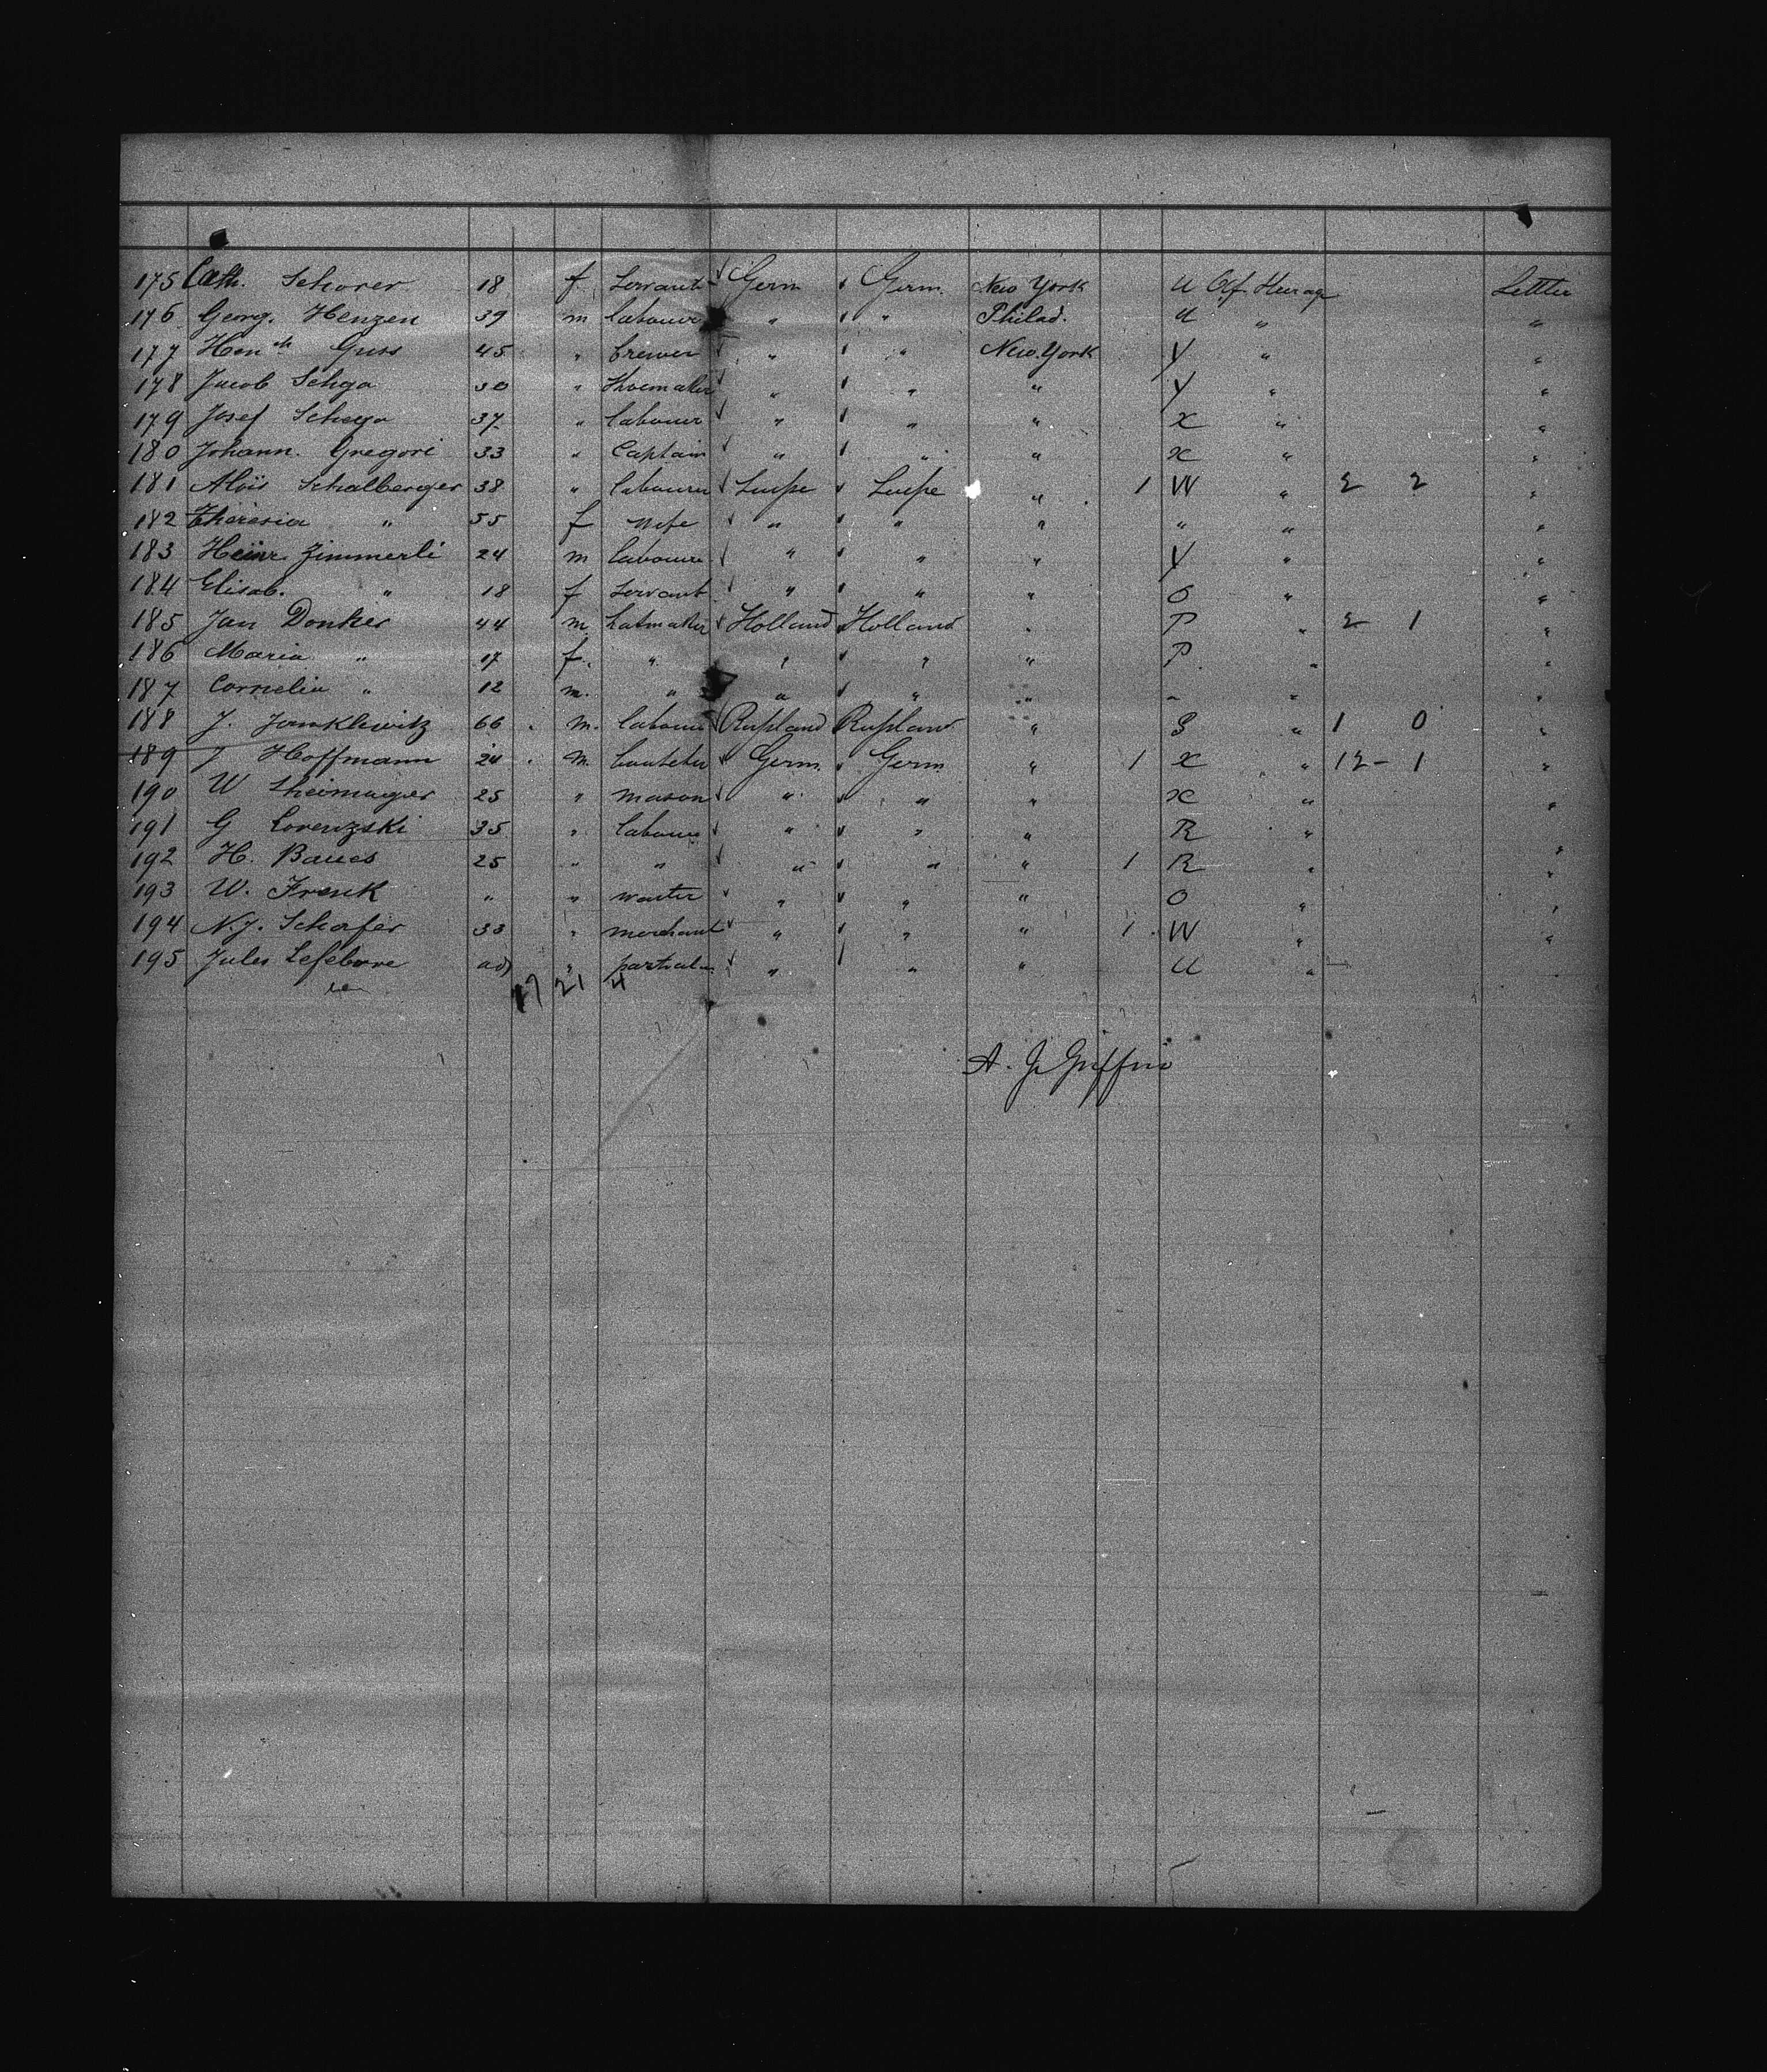 175 Cath. Schorer 18 f Servant Germ Germ. New York U Af. Settler
176 Georg. Henzen 39 m labourer " " Philad. U " "
177 Hench Guss 45 " brewer " " New York Y " "
178 Jacob Schga 30 " Shoemaker " " " Y " "
179 Josef Schega 37 " labourer " " " X " "
180 Johann. Gregori 33 " Captain " " " X " "
181 Aloïs Schalberger 38 " labourer " 1 W " 2 2 "
182 Theresia " 55 f wife " " " " " "
183 Heinr Zimmerli 24 m labourer " " " Y " "
184 Elisab. " 18 f Servant " " " O " "
185 Jan Donker 44 m. hatmaker Holland Holland " P " 2 1 "
186 Maria " 17 f. " " " " P " "
187 Cornelia " 12 m. " " " " " " "
188 J. Janklewitz 66 m. labourer Rußland Rußland " S " 1 0 "
189 J Hoffmann 24 m. Germ. Germ " 1 X " 12 - 1 "
190 W 25 " mason " " " X " "
191 G Lorenzski 35 " labourer " " " R " "
192 H. Baues 25 " " " " " 1 R " "
193 W. Frenk " " waiter " " " O " "
194 N. J. Schafer 33 " merchant " " " 1 W " "
195 Jules Lefebvre " " " " U "
17 21 4
A. J. Griffin